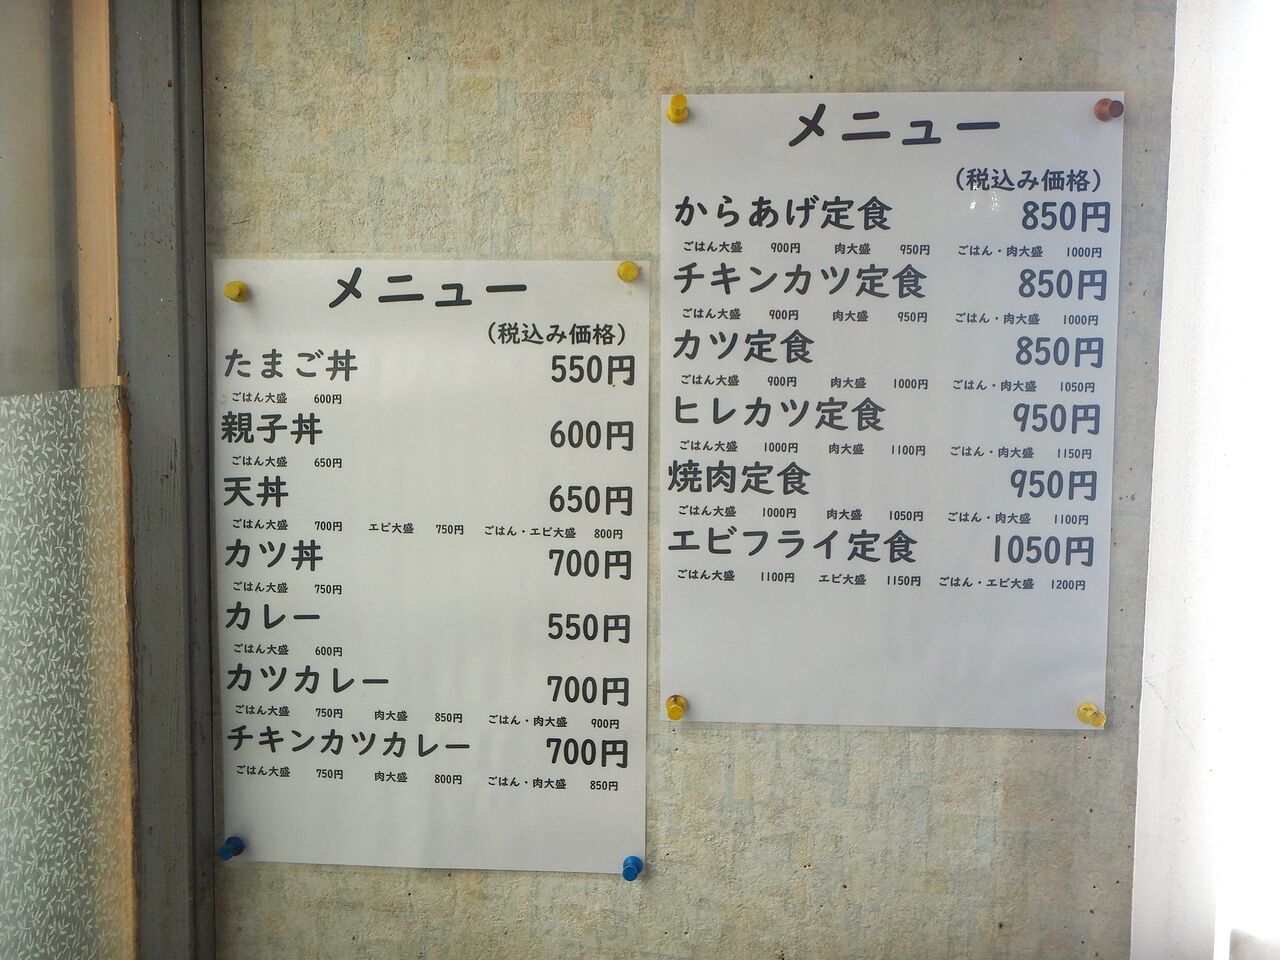 メニュー
(税込み価格)
たまご丼 550円
ごはん大盛 600円
親子丼 600円
ごはん大盛 650円
天丼 650円
ごはん大盛 700円 エビ大盛 750円 ごはん・エビ大盛 800円
カツ丼 700円
ごはん大盛 750円
カレー 550円
ごはん大盛 600円
カツカレー 700円
ごはん大盛 750円 肉大盛 850円 ごはん・肉大盛 900円
チキンカツカレー 700円
ごはん大盛 750円 肉大盛 800円 ごはん・肉大盛 850円
メニュー
(税込み価格)
からあげ定食 850円
ごはん大盛 900円 肉大盛 950円 ごはん・肉大盛 1000円
チキンカツ定食 850円
ごはん大盛 900円 肉大盛 950円 ごはん・肉大盛 1000円
カツ定食 850円
ごはん大盛 900円 肉大盛 1000円 ごはん・肉大盛 1050円
ヒレカツ定食 950円
ごはん大盛 1000円 肉大盛 1100円 ごはん・肉大盛 1150円
焼肉定食 950円
ごはん大盛 1000円 肉大盛 1050円 ごはん・肉大盛 1100円
エビフライ定食 1050円
ごはん大盛 1100円 エビ大盛 1150円 ごはん・エビ大盛 1200円